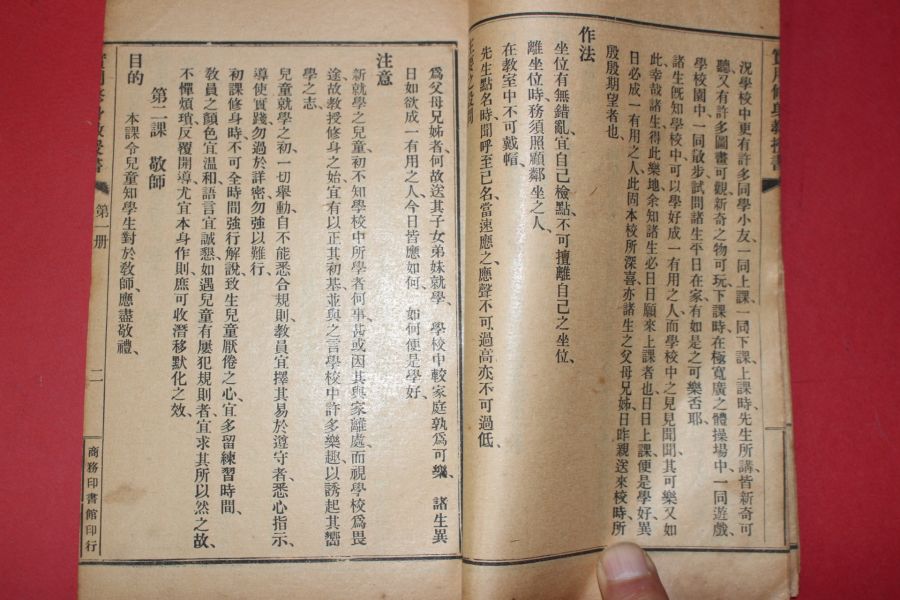 況學校中更有許多同學小友、一同上課、一同下課、上課時、先生所講、皆新奇可
聽、又有許多圖畫可觀、新奇之物可玩、下課時、在極寬廣之體操場中、一同遊戲、
學校園中、一同散步、試問諸生平日在家、有如是之可樂否耶、
諸生旣知學校中可以學好、成一有用之人、而學校中之見見聞聞、其可樂又如
此、幸哉諸生、得此樂地、余知諸生必日日願來上課者也、日日上課、便是學好、異
日必成一有用之人、此固本校所深喜、亦諸生之父母兄姊、日昨親送來校時、所
殷殷期望者也、
作法
坐位有無錯亂、宜自己檢點、不可擅離自己之坐位、
離坐位時、務須照顧鄰坐之人、
在教室中不可戴帽、
先生點名時、聞呼至己名、當速應之、應聲不可過高、亦不可過低、
爲父母兄姊者、何故送其子女弟妹就學、 學校中較家庭孰爲可樂、 諸生異
日如欲成一有用之人、今日皆應如何、 如何便是學好、
注意
新就學之兒童、初不知學校中所學者何事、甚或因其與家離處、而視學校爲畏
途、故教授修身之始、宜有以正其初基、並與之言學校中許多樂趣、以誘起其嚮
學之志、
兒童就學之初、一切舉動、自不能悉合規則、教員宜擇其易於遵守者、悉心指示、
導使實踐、勿過於詳密、勿強以難行、
初課修身時、不可全時間強行解說、致生兒童厭倦之心、宜多留練習時間、
教員之顏色宜温和、語言宜誠懇、如遇兒童有屢犯規則者、宜求其所以然之故、
不憚煩瑣、反覆開導、尤宜本身作則、庶可收潛移默化之效、
第二課 敬師
目的 本課令兒童知學生對於教師、應盡敬禮、
第一册
二
商務印書館印行